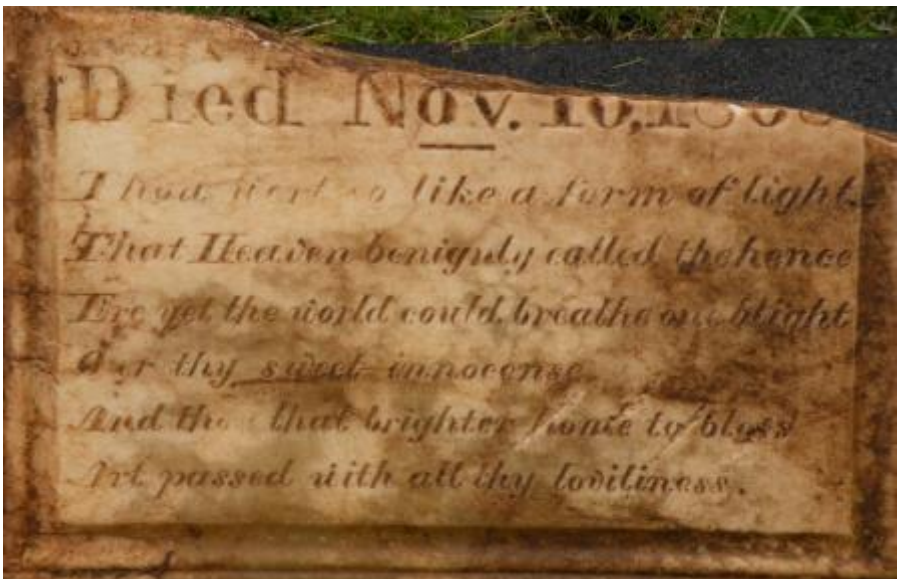 Died Nov. 10,
Thou wert so like a form of light
That Heaven benignly called thehence
Ere yet the world could breathe one blight
O'er thy sweet innocense
And thou that brighter home to bless
Art passed with all thy loviliness.